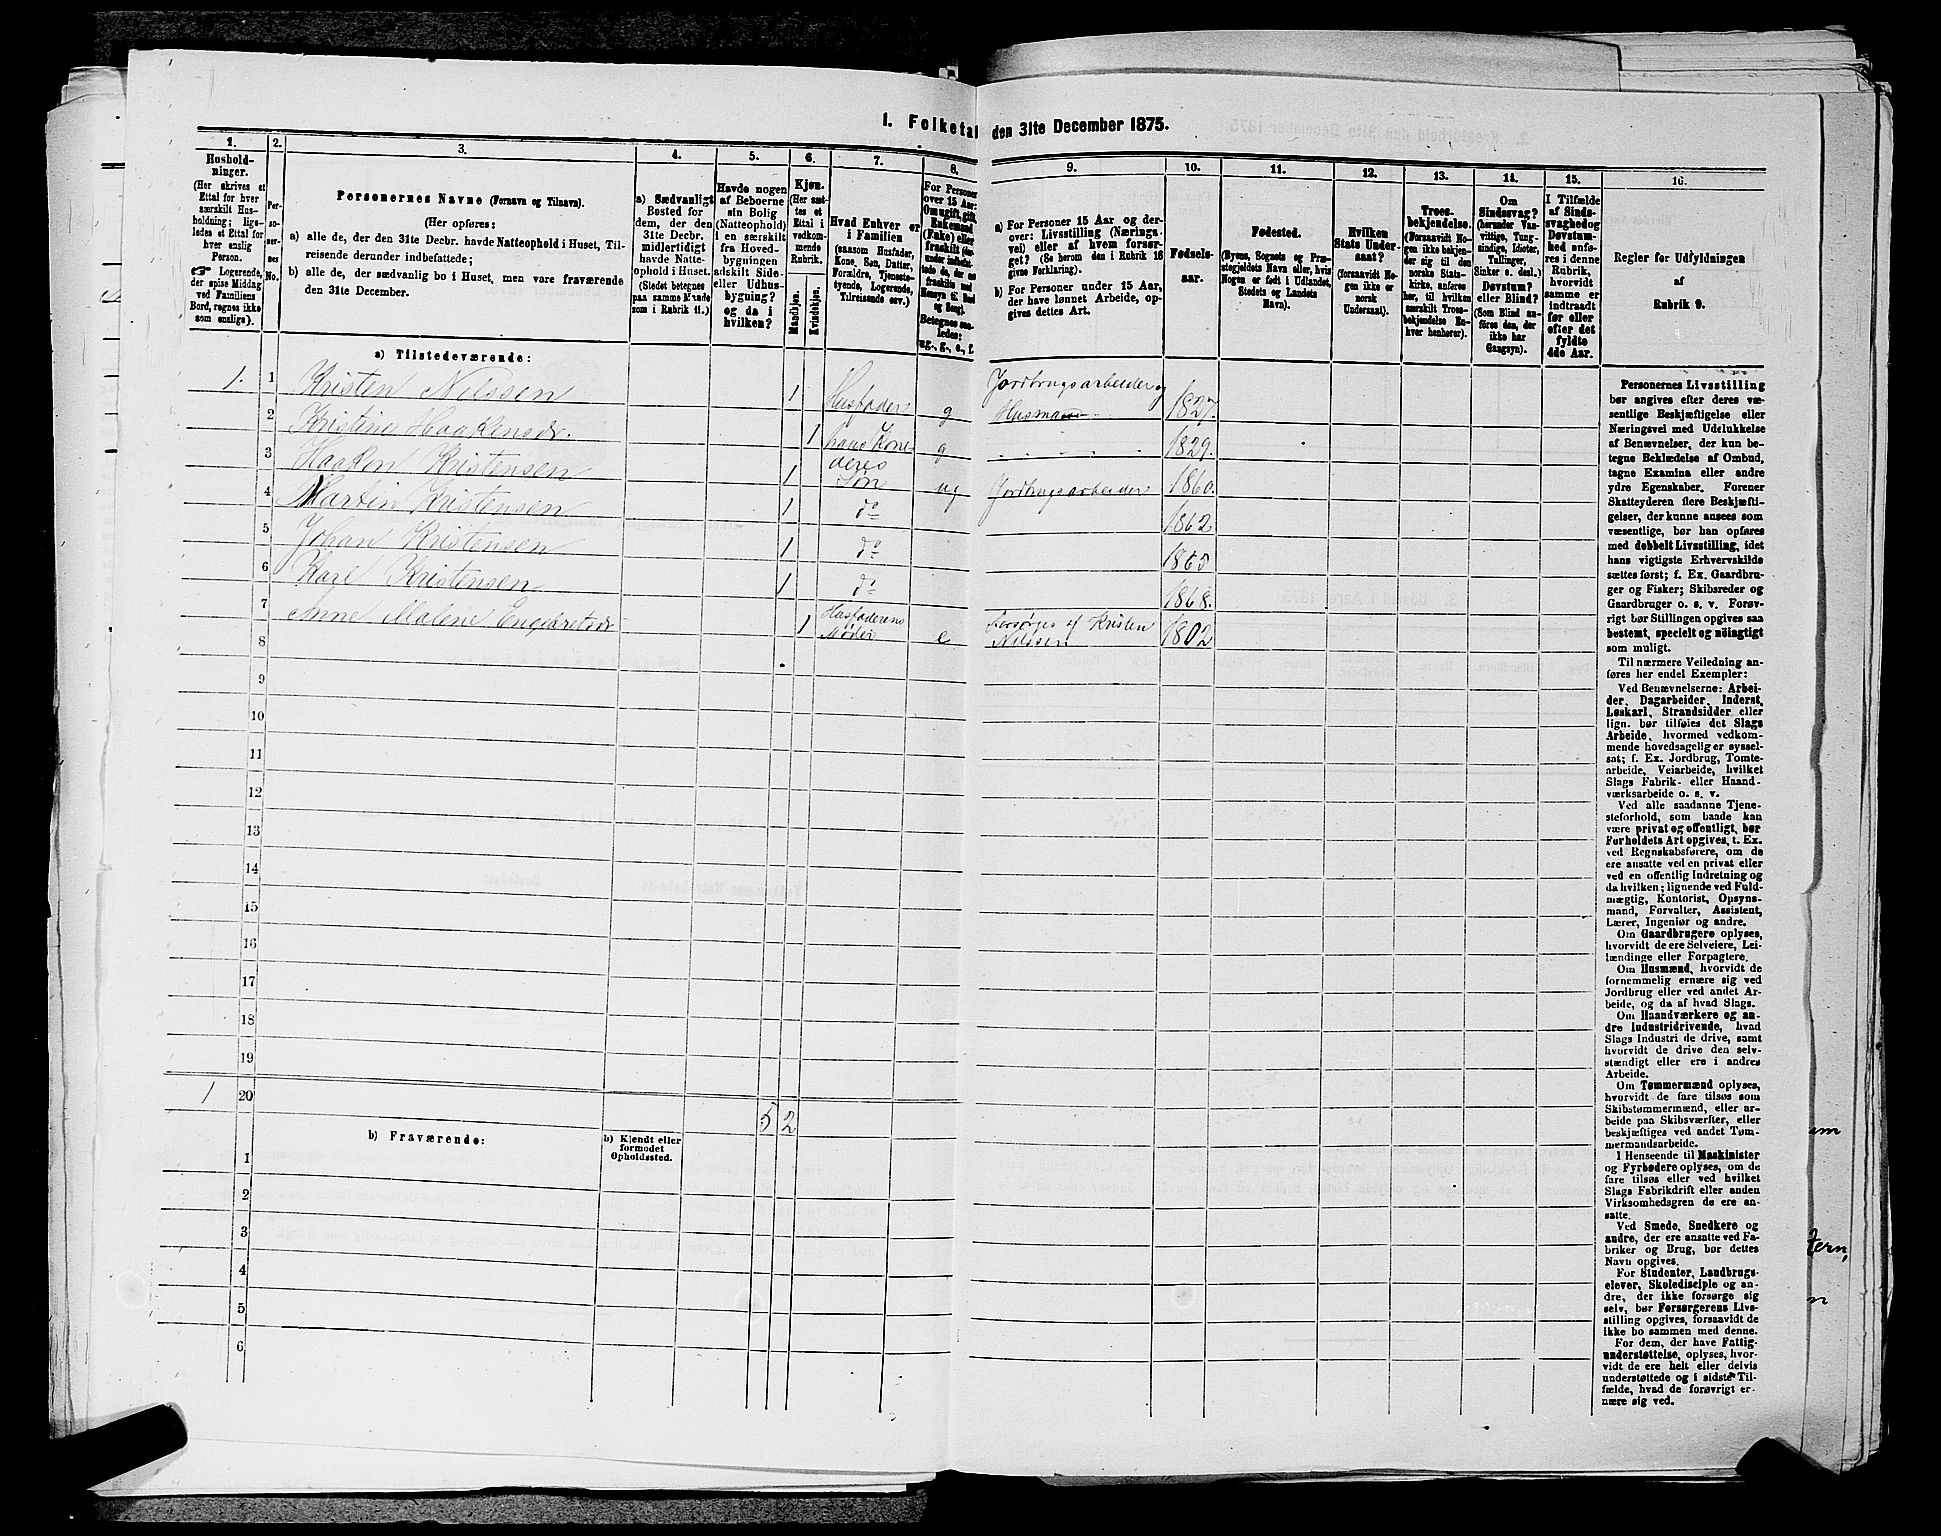 1. Folketal den 31te December 1875.
1. 2. 3. 4. 5. 6. 7. 8. 9. 10. 11. 12. 13. 14. 15. 16.
Hushold-
ninger.
(Her skrives et
Ettal for hver
særskilt Hus-
holdning; lige-
ledes et Ettal for
hver enslig
Person.
☞ Logerende,
der spise Middag
ved Familiens
Bord, regnes ikke
som enslige).
Per-
so-
ner-
nes
No.
Personernes Navne (Fornavn og Tilnavn).
(Her opføres:
a) alle de, der den 31te Decbr. havde Natteophold i Huset, Til-
reisende derunder indbefattede;
b) alle de, der sædvanlig bo i Huset, men vare fraværende
den 31te December.
a) Sædvanligt
Bosted for
dem, der den
31te Decbr.
midlertidigt
havde Natte-
ophold i Huset.
(Stedet betegnes
paa samme Maade
som i Rubrik 11.)
Havde nogen
af Beboerne
sin Bolig
(Natteophold)
i en særskilt
fra Hoved-
bygningen
adskilt Side-
eller Udhus-
bygning?
og da i
hvilken?
Kjøn.
(Her sæt-
tes et
Ettal i
vedkom-
mende
Rubrik.
Mandkjøn.
Kvindekjøn.
Hvad Enhver er
i Familien
(saasom Husfader,
Kone, Søn, Datter,
Forældre, Tjeneste-
tyende, Logerende,
Tilreisende osv.)
For Personer
over 15 Aar:
Om ugift, gift,
Enkemand
(Enke) eller
fraskilt
Betegnes saa-
ledes:
ug., g., e., f.
a) For Personer 15 Aar og der-
over: Livsstilling (Nærings-
vei) eller af hvem forsør-
get? (Se herom den i Rubrik 16
givne Forklaring).
b) For Personer under 15 Aar,
der have lønnet Arbeide, op-
gives dettes Art.
Fødsels-
aar.
Fødested.
(Byens, Sognets og Præ-
stegjeldets Navn eller, hvis
Nogen er født i Udlandet,
Stedets og Landets
Navn).
Hvilken
Stats Under-
saat?
(forsaavidt No-
gen ikke er
norsk
Undersaat).
Troes-
bekjendelse.
(Forsaavidt No-
gen ikke bekjen-
der sig til den
norske Stats-
kirke, anføres
her, til hvilken
særskilt Troes-
bekjendelse En-
hver henhører).
Om
Sindssvag?
(herunder Van-
vittige, Tung-
sindige, Idioter,
Tullinger,
Sinker o. desl.)
Døvstum?
eller Blind?
(Som Blind an-
føres den, der
ikke har
Gangsyn).
I Tilfælde
af Sinds-
svaghed og
Døvstum-
hed anfø-
res i denne
Rubrik,
hvorvidt
samme er
indtraadt
før eller
efter det
fyldte
4de Aar.
Regler for Udfyldningen
af
Rubrik 9.
a) Tilstedeværende:
1. 1 Kristen Nilssen 1 Husfader g Jordbrugsarbeider og Husmand 1827.
2 Kristine Haakensdr. 1 hans Kone g 1829.
3 Haakon Kristensen 1 deres Søn ug Jordbrugsarbeider 1860.
4 Martin Kristensen 1 do 1862.
5 Johan Kristensen 1 do 1865
6 Karl Kristensen 1 do 1868.
7 Anne Malene Engebretsdr 1 Husfaderens Moder e Forsørges af Kristen Nilssen 1802
8
9
10
11
12
13
14
15
16
17
18
19
1 20 5 2
b) Fraværende:
b) Kjendt eller
formodet
Opholdssted.
1
2
3
4
5
6
Personernes Livsstilling
bør angives efter deres væ-
sentlige Beskjæftigelse eller
Næringsvei med Udelukkelse
af Benævnelser, der kun be-
tegne Beklædelse af Ombud,
tagne Examina eller andre
ydre Egenskaber. Forener
Skatteyderen flere Beskjæfti-
gelser, der kunne ansees som
væsentlige, bør han opføres
med dobbelt Livsstilling, idet
hans vigtigste Erhvervskilde
sættes først; f. Ex. Gaardbru-
ger og Fisker; Skibsreder og
Gaardbruger o. s. v. Forøv-
rigt bør Stillingen opgives saa
bestemt, specielt og nøiagtigt
som muligt.
Til nærmere Veiledning an-
føres her endel Exempler:
Ved Benævnelserne: Arbei-
der, Dagarbeider, Inderst,
Løskarl, Strandsidder eller
lign. bør tilføies det Slags
Arbeide, hvormed vedkom-
mende hovedsagelig er syssel-
sat; f. Ex. Jordbrug, Tomte-
arbeide, Veiarbeide, hvilket
Slags Fabrik- eller Haand-
værksarbeide o. s. v.
Ved alle saadanne Tjene-
steforhold, som baade kan
være privat og offentligt, bør
Forholdets Art opgives, t. Ex.
ved Regnskabsførere, om de
ere ansatte ved en privat eller
ved en offentlig Indretning og
da hvilken; lignende ved Fuld-
mægtig, Kontorist, Opsyns-
mand, Forvalter, Assistent,
Lærer, Ingeniør og andre.
Om Gaardbrugere oplyses,
hvorvidt de ere Selveiere, Lei-
lændinge eller Forpagtere.
Om Husmænd, hvorvidt de
fornemmelig ernære sig ved
Jordbrug eller ved andet Ar-
beide, og da af hvad Slags.
Om Haandværkere og an-
dre Industridrivende, hvad
Slags Industri de drive, samt
hvorvidt de drive den selv-
stændigt eller ere i andres
Arbeide.
Om Tømmermænd oplyses,
hvorvidt de fare tilsøs som
Skibstømmermænd, eller ar-
beide paa Skibsværfter, eller
beskjæftiges ved andet Tøm-
mermandsarbeide.
I Henseende til Maskinister
og Fyrbødere oplyses, om de
fare tilsøs eller ved hvilket
Slags Fabrikdrift eller anden
Virksomhedsgren de ere an-
satte.
Ved Smede, Snedkere og
andre, der ere ansatte ved Fa-
briker og Brug, bør dettes
Navn opgives.
For Studenter, Landbrugs-
elever, Skoledisciple og an-
dre, der ikke forsørge sig
selv, bør Forsørgerens Livs-
stilling opgives, forsaavidt de
ikke bo sammen med denne.
For dem, der have Fattig-
understøttelse, oplyses, hvor-
vidt de ere helt eller delvis
understøttede og i sidste Til-
fælde, hvad de forøvrigt er-
nære sig ved.